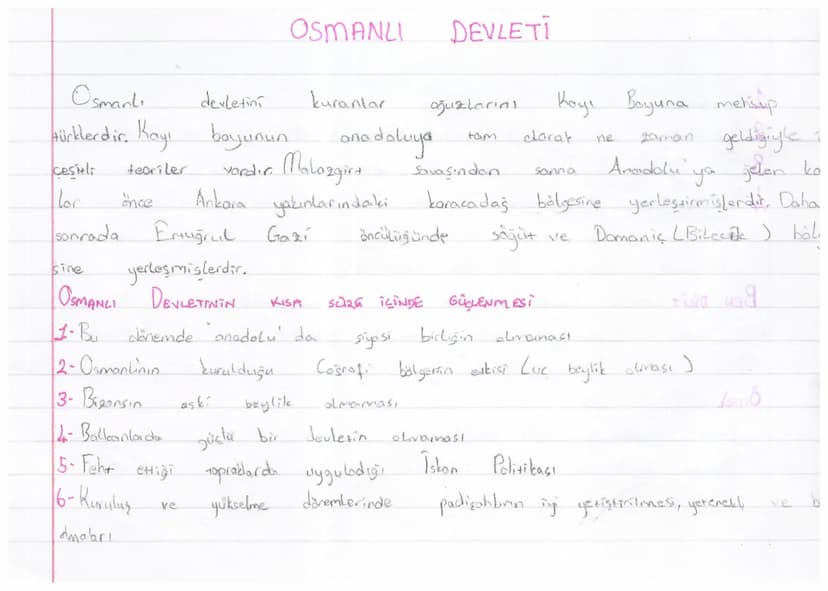 OSMANLI DEVLETİ
Osmanlı devletini kuranlar oğuzların Kayı Boyuna mensup
türklerdir. Kayı boyunun anadoluya tam olarak ne zaman geldiğiyle
çeşitli teoriler vardır. Malazgirt Savaşından sonra Anadolu'ya gelen
lar önce Ankara yakınlarındaki karacadağ bölgesine yerleştirmişlerdir. Daha
sonrada Ertuğrul Gazi öncülüğünde söğüt ve Domaniç (Bilecik)
sine yerleşmişlerdir.
OSMANLI DEVLETININ KISA SÜRE İÇİNDE GÜÇLENMESİ
1- Bu dönemde anadolu' da siyasi birliğin olmaması
2- Osmanlının kurulduğu Coğrafi bölgenin etkisi (uc beylik olması)
3- Bizansın eski beylik olmaması
4- Balkanlarda güçlü bir devletin olmaması
5- Feht ettiği topraklarda uyguladığı İskan Politikası
6- Kuruluş ve yükselme dönemlerinde padişahların iyi yetiştirilmesi, yetenekli ve
olmaları